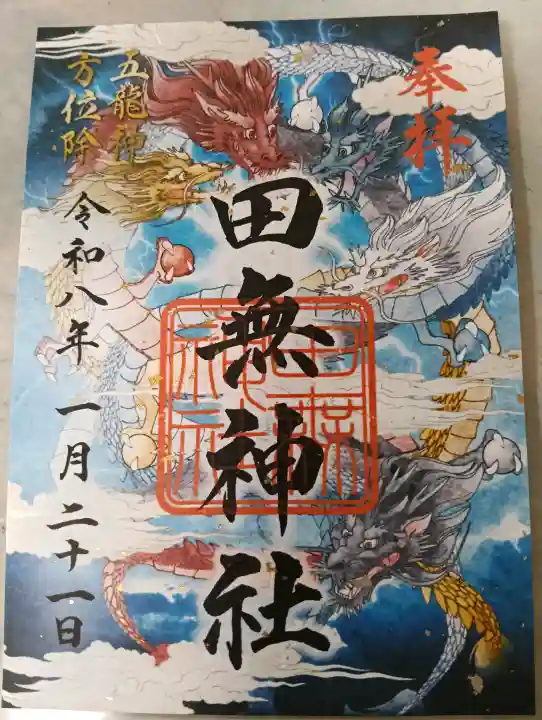 奉拝
田無神社
五龍神
方位除
令和八年 一月 二十一日
田無神社